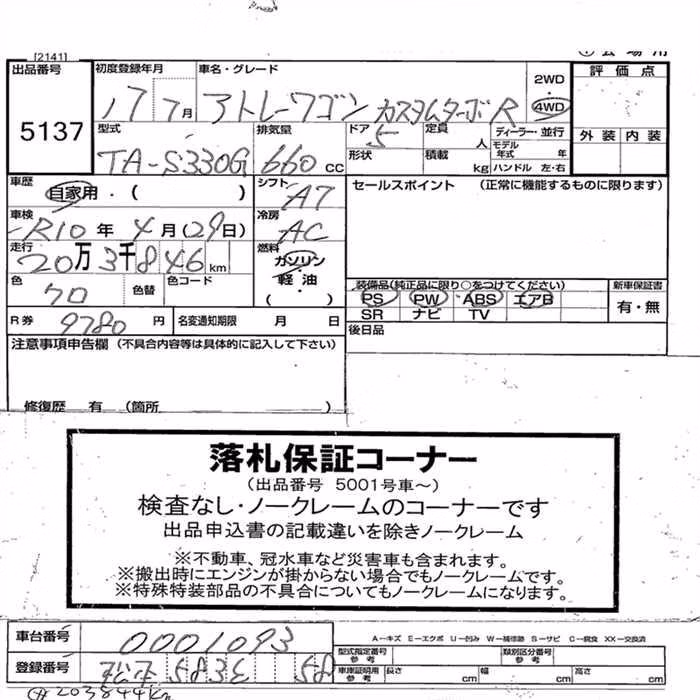 [2141]
出品番号 5137
初度登録年月 17 7月
車名・グレード アトレーワゴン カスタムターボR
2WD 4WD
評価点
外装 内装
型式 TA-S330G
排気量 660 cc
ドア 5
定員 人
ディーラー・並行
形状
積載 kg
モデル年式 年
ハンドル 左・右
車歴 自家用・( )
シフト A7
セールスポイント (正常に機能するものに限ります)
車検 R10年4月(29日)
冷房 AC
走行 20万3千846km
燃料 ガソリン 軽油 ( )
色 クロ
色替
色コード
装備品(純正品に限り○をつけてください)
PS PW ABS エアB
SR ナビ TV
新車保証書
有・無
R券 9780円
名変通知期限 月 日
後日品
注意事項申告欄 (不具合内容等は具体的に記入して下さい)
修復歴 有 (箇所 )
落札保証コーナー
(出品番号 5001号車~)
検査なし・ノークレームのコーナーです
出品申込書の記載違いを除きノークレーム
※不動車、冠水車など災害車も含まれます。
※搬出時にエンジンが掛からない場合でもノークレームです。
※特殊特装部品の不具合についてもノークレームになります。
A-キズ E-エクボ U-凹み W-補修跡 S-サビ C-腐食 XX-交換済
車台番号 0001093
型式指定番号 参考
類別区分番号 参考
登録番号 583 58
車庫証明用 参考 長さ cm 幅 cm 高さ cm
203844Km